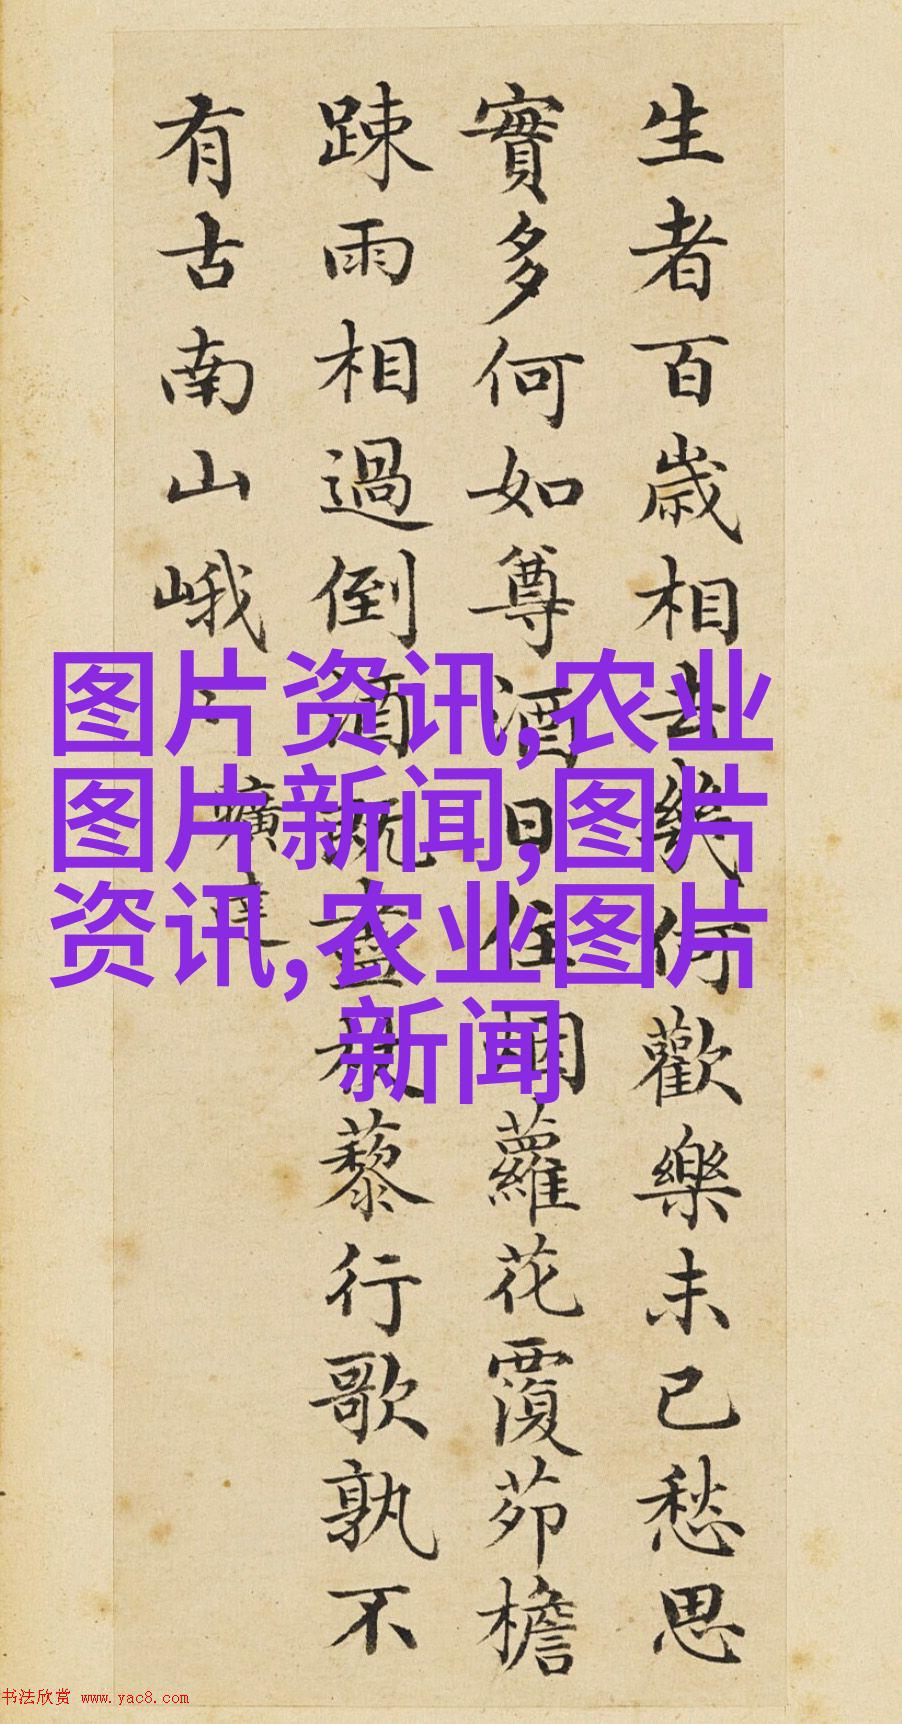 生者百歲相去幾何歡樂未已愁思
實多何如尊酒日往烟蘿花覆茆檐
踈雨相過倒酒既盡杖藜行歌孰不
有古南山峨
曠達
图片资讯,农业
图片新闻,图片
资讯,农业图片
新闻
书法欣赏 www.yac8.com